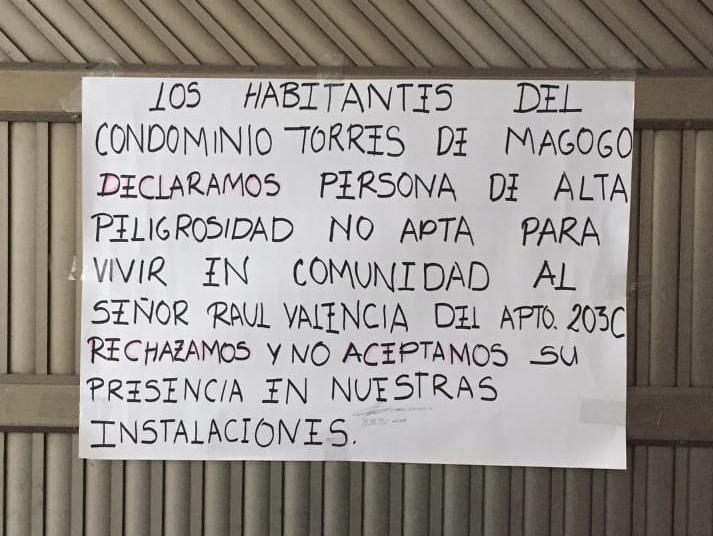 LOS HABITANTES DEL
CONDOMINIO TORRES DE MAGOGO
DECLARAMOS PERSONA DE ALTA
PELIGROSIDAD NO APTA PARA
VIVIR EN COMUNIDAD AL
SEÑOR RAUL VALENCIA DEL APTO. 203C
RECHAZAMOS Y NO ACEPTAMOS SU
PRESENCIA EN NUESTRAS
INSTALACIONES.